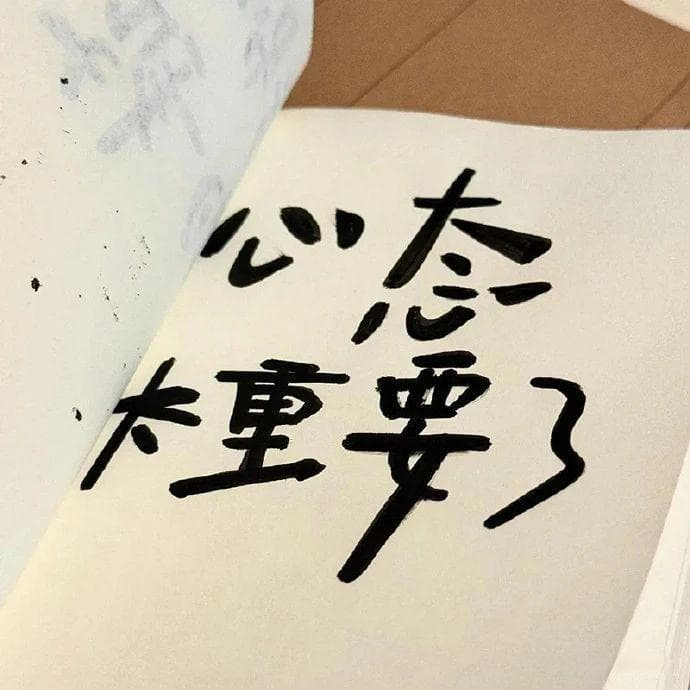 心态
太重要了